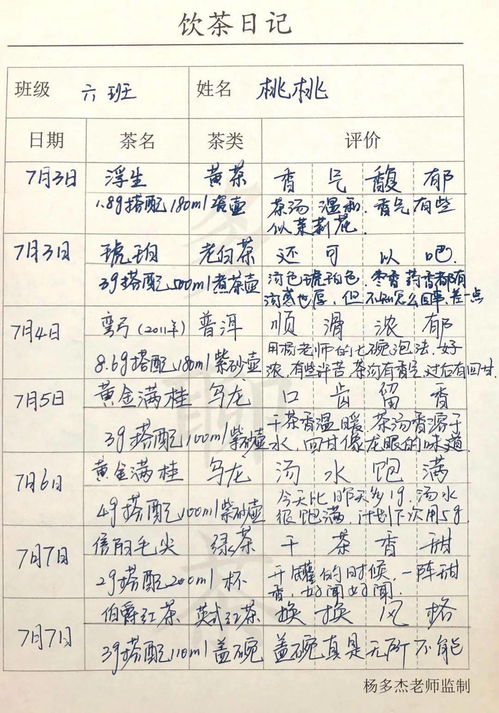 饮茶日记
班级 六班 姓名 桃桃
日期 茶名 茶类 评价
7月3日 浮生 黄茶 香气馥郁
1.8g搭配180ml瓷壶 茶汤温雨,香气有些
似茉莉花.
7月3日 琥珀 老白茶 还可以吧
3g搭配500ml煮茶壶 汤色琥珀色.枣香药香都有
汤感也厚,但不知怎么回事差一点
7月4日 弯弓(2011年) 普洱 顺滑浓郁
8.6g搭配180ml紫砂壶 用杨老师的七碗泡法.好
浓,有些许苦.茶汤有香气,过后有回甘.
7月5日 黄金满桂 乌龙 口齿留香
3g搭配100ml紫砂壶 干茶香温暖 茶汤香溶于
水,回甘像龙眼的味道.
7月6日 黄金满桂 乌龙 汤水饱满
4g搭配100ml紫砂壶 今天比昨天多1g.汤水
很饱满.计划下次用5g
7月7日 信阳毛尖 绿茶 干茶香甜
2g搭配200ml杯 开罐的时候,一阵甜
香,好闻好闻.
7月7日 伯爵红茶 英式红茶 换换风格
3g搭配110ml盖碗 盖碗真是无所不能
杨多杰老师监制